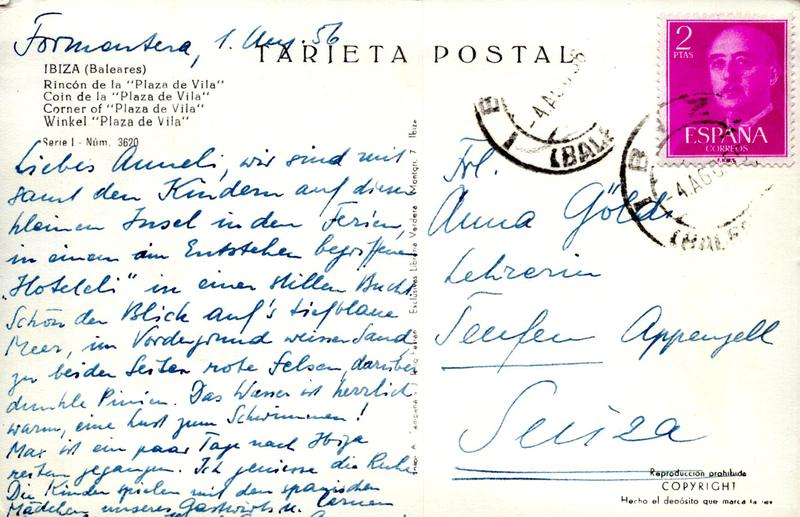 Formentera, 1. Aug. 56
TARJETA POSTAL
IBIZA (Baleares)
Rincón de la "Plaza de Vila"
Coin de la "Plaza de Vila"
Corner of "Plaza de Vila"
Winkel "Plaza de Vila"
Serie I - Núm. 3620
Liebes Anneli, wir sind mit
samt den Kindern auf dieser
kleinen Insel in den Ferien,
in einem im Entstehen begriffenen
"Hoteleli" in einer stillen Bucht.
Schön der Blick auf's tiefblaue
Meer, im Vordergrund weisser Sand
zu beiden Seiten rote Felsen, darüber
dunkle Pinien. Das Wasser ist herrlich
warm, eine Lust zum Schwimmen!
Max ist ein paar Tage nach Ibiza
reiten gegangen. Ich geniesse die Ruhe
Die Kinder spielen mit den spanischen
Mädchen unseres Gastwirts u. lernen
Exclusivas Librería Verdera Montgri, 7 Ibiza
2
PTAS
ESPAÑA
CORREOS
-4 AGO 56
(BALE
IBIZ
-4 AGO
(BALEA
Frl.
Anna Göldi
Lehrerin
Teufen Appenzell
Suiza
Reproducción prohibida
COPYRIGHT
Hecho el depósito que marca la ley